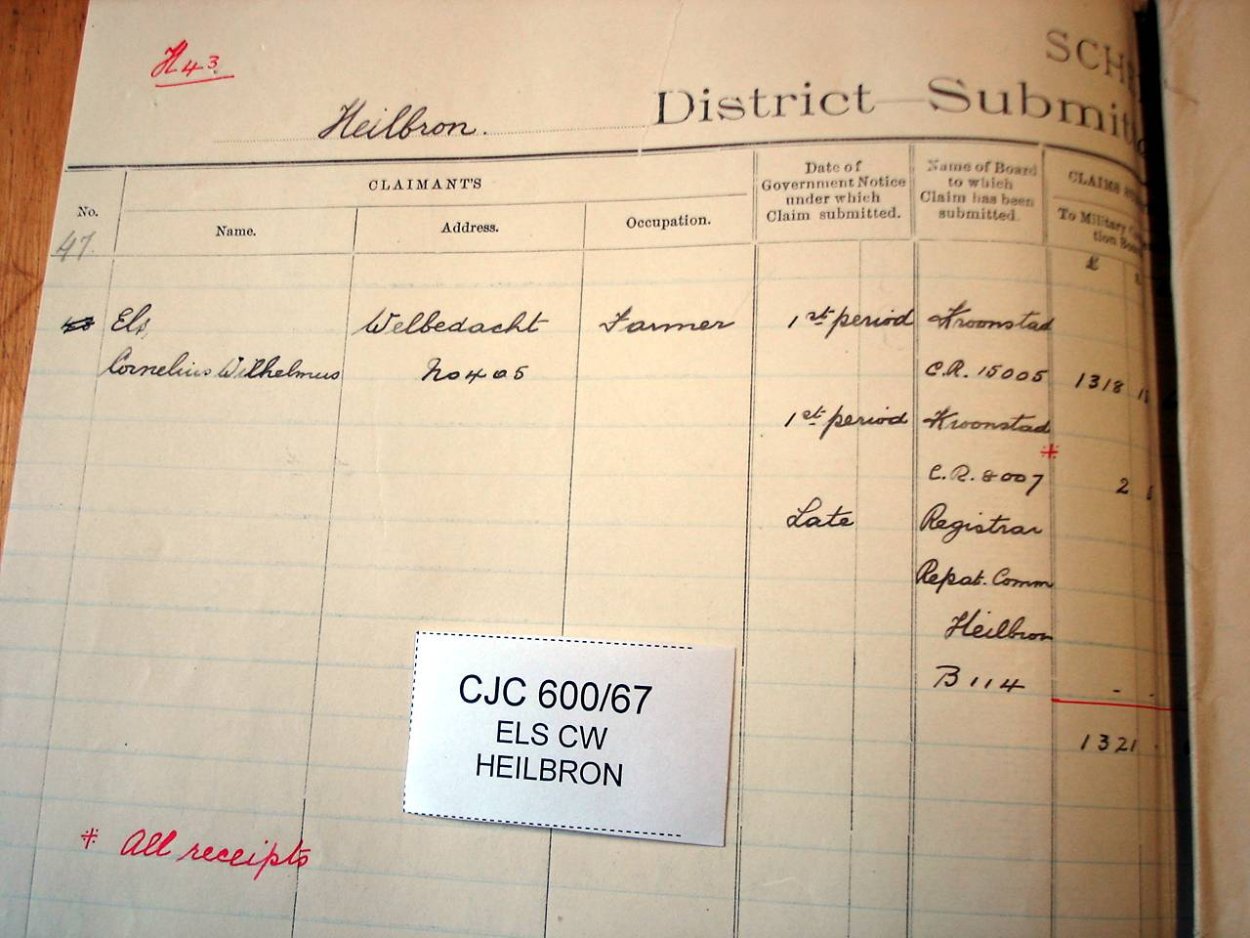 H 43.
SCH
Heilbron. District Submit
CLAIMANT'S
No. Name. Address. Occupation. Date of Government Notice under which Claim submitted. Name of Board to which Claim has been submitted. CLAIMS
To Military
tion
47.
£
Els, Welbedacht Farmer 1st period Kroonstad
Cornelius Wilhelmus No 405 C.R. 15005 1318
1st period Kroonstad
*
C.R. 8007 2
Late Registrar
Repat. Comm
Heilbron
B 114 - -
1321
CJC 600/67
ELS CW
HEILBRON
* All receipts